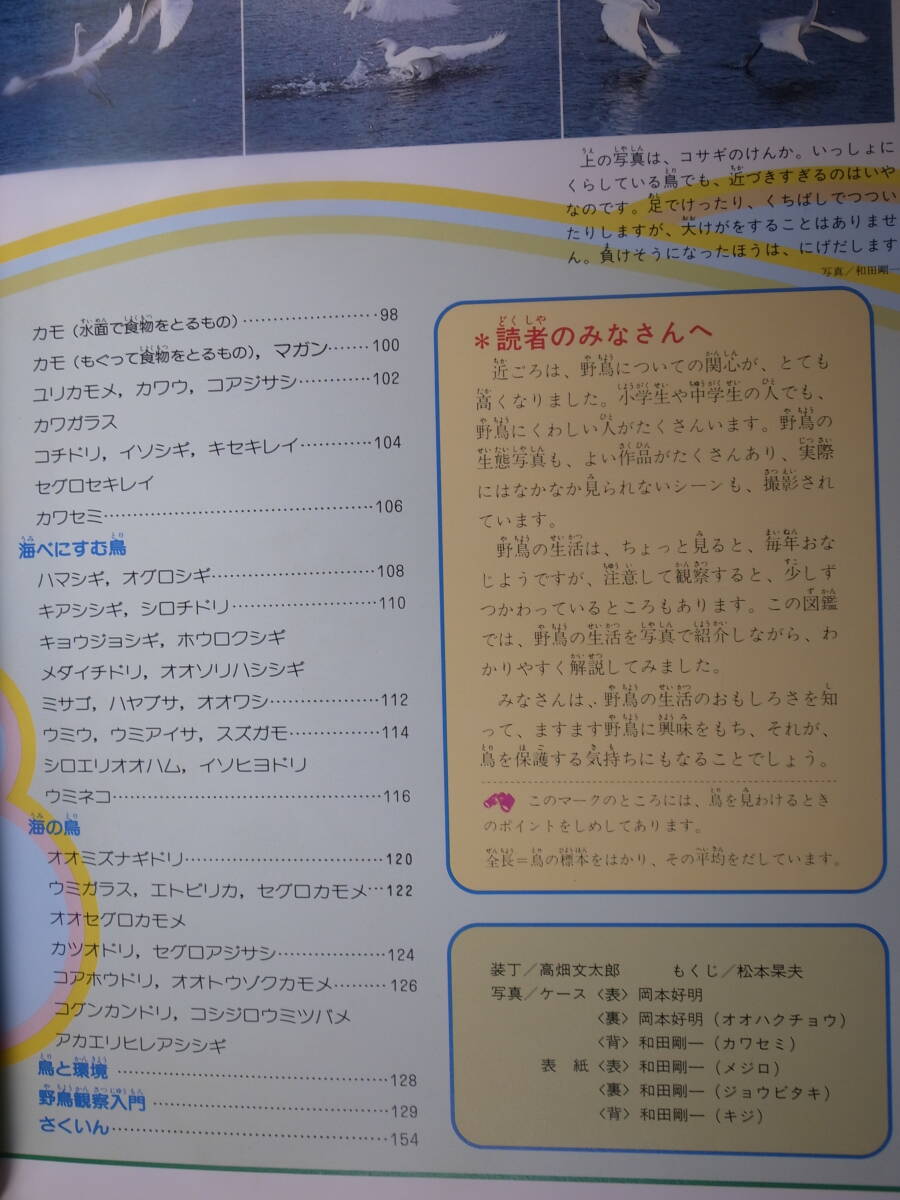 上の写真は、コサギのけんか。いっしょに
くらしている鳥でも、近づきすぎるのはいや
なのです。足でけったり、くちばしでつつい
たりしますが、大けがをすることはありませ
ん。負けそうになったほうは、にげだします
写真／和田剛一
カモ（水面で食物をとるもの）…………………98
カモ（もぐって食物をとるもの），マガン……100
ユリカモメ，カワウ，コアジサシ…………102
カワガラス
コチドリ，イソシギ，キセキレイ…………104
セグロセキレイ
カワセミ……………………………………106
海べにすむ鳥
ハマシギ，オグロシギ……………………108
キアシシギ，シロチドリ…………………110
キョウジョシギ，ホウロクシギ
メダイチドリ，オオソリハシシギ
ミサゴ，ハヤブサ，オオワシ……………112
ウミウ，ウミアイサ，スズガモ…………114
シロエリオオハム，イソヒヨドリ
ウミネコ……………………………………116
海の鳥
オオミズナギドリ…………………………120
ウミガラス，エトピリカ，セグロカモメ…122
オオセグロカモメ
カツオドリ，セグロアジサシ……………124
コアホウドリ，オオトウゾクカモメ………126
コグンカンドリ，コシジロウミツバメ
アカエリヒレアシシギ
鳥と環境……………………………………128
野鳥観察入門………………………………129
さくいん……………………………………154
＊読者のみなさんへ
近ごろは、野鳥についての関心が、とても
高くなりました。小学生や中学生の人でも、
野鳥にくわしい人がたくさんいます。野鳥の
生態写真も、よい作品がたくさんあり、実際
にはなかなか見られないシーンも、撮影され
ています。
野鳥の生活は、ちょっと見ると、毎年おな
じようですが、注意して観察すると、少しず
つかわっているところもあります。この図鑑
では、野鳥の生活を写真で紹介しながら、わ
かりやすく解説してみました。
みなさんは、野鳥の生活のおもしろさを知
って、ますます野鳥に興味をもち、それが、
鳥を保護する気持ちにもなることでしょう。
このマークのところには、鳥を見わけるとき
のポイントをしめしてあります。
全長＝鳥の標本をはかり、その平均をだしています。
装丁／高畑文太郎　もくじ／松本杲夫
写真／ケース〈表〉岡本好明
〈裏〉岡本好明（オオハクチョウ）
〈背〉和田剛一（カワセミ）
表　紙〈表〉和田剛一（メジロ）
〈裏〉和田剛一（ジョウビタキ）
〈背〉和田剛一（キジ）